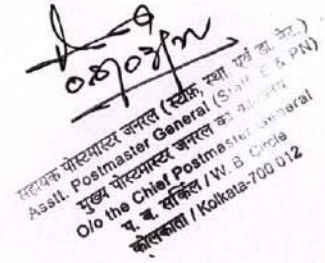 सहायक पोस्टमास्टर जनरल (स्टाफ, स्था. एवं डा. नेट.)
Assit. Postmaster General (Staff, E & PN)
मुख्य पोस्टमास्टर जनरल का कार्यालय
O/o the Chief Postmaster General
प. ब. सर्किल / W. B. Circle
कोलकाता / Kolkata-700 012